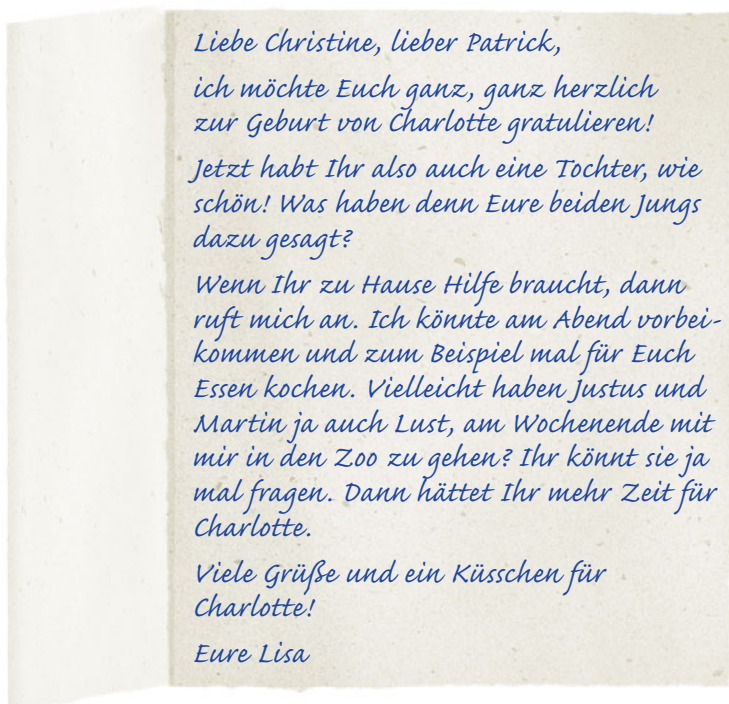 Liebe Christine, lieber Patrick,
ich möchte Euch ganz, ganz herzlich
zur Geburt von Charlotte gratulieren!
Jetzt habt Ihr also auch eine Tochter, wie
schön! Was haben denn Eure beiden Jungs
dazu gesagt?
Wenn Ihr zu Hause Hilfe braucht, dann
ruft mich an. Ich könnte am Abend vorbei-
kommen und zum Beispiel mal für Euch
Essen kochen. Vielleicht haben Justus und
Martin ja auch Lust, am Wochenende mit
mir in den Zoo zu gehen? Ihr könnt sie ja
mal fragen. Dann hättet Ihr mehr Zeit für
Charlotte.
Viele Grüße und ein Küsschen für
Charlotte!
Eure Lisa